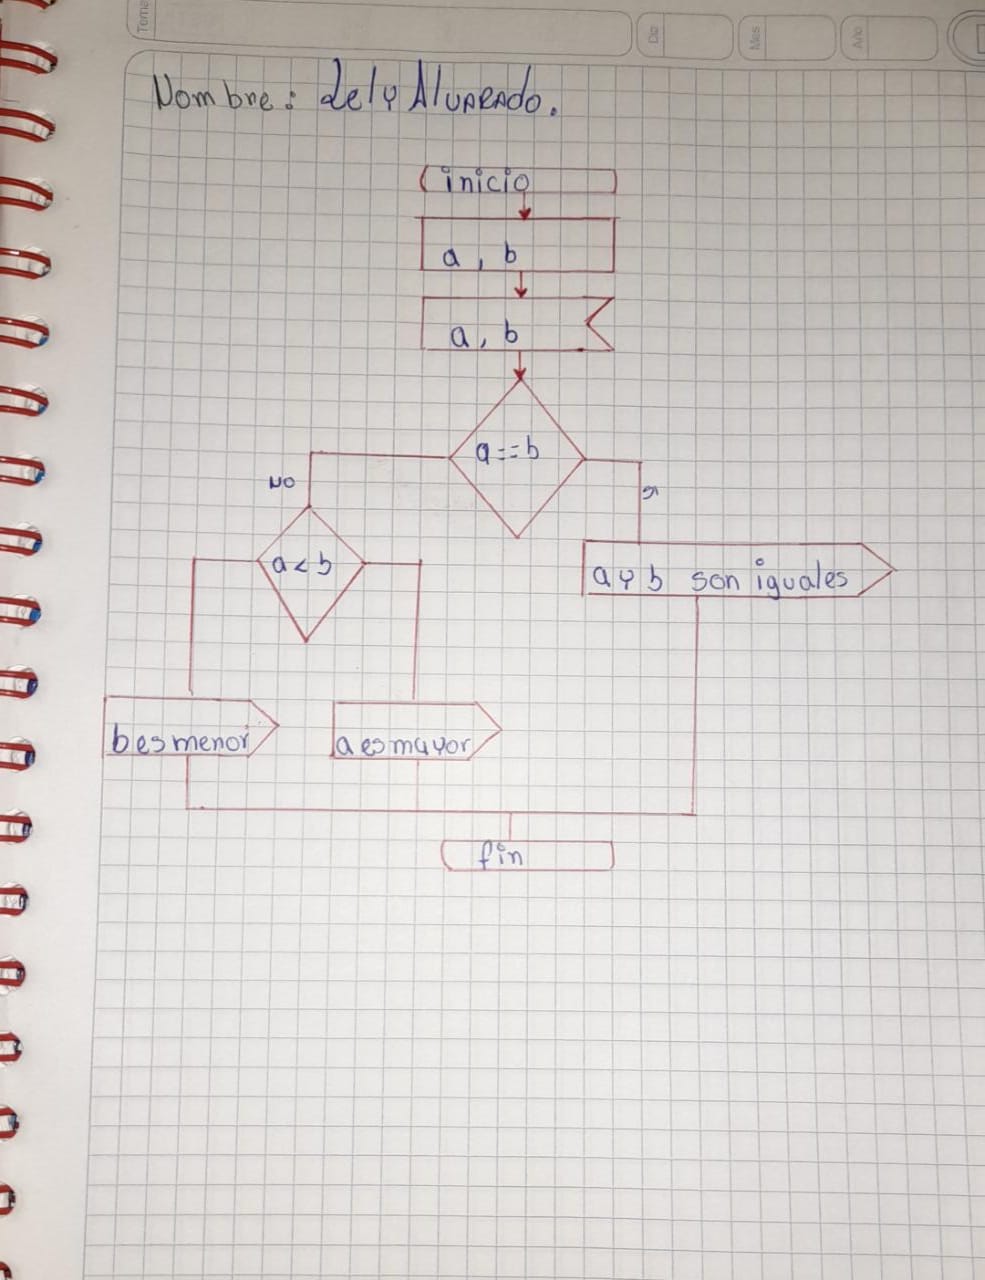 Tema
Dia
Mes
Año
Nombre: Lely Alvarado.
inicio
a, b
a, b
a==b
NO
si
a<b
a y b son iguales
b es menor
a es mayor
fin